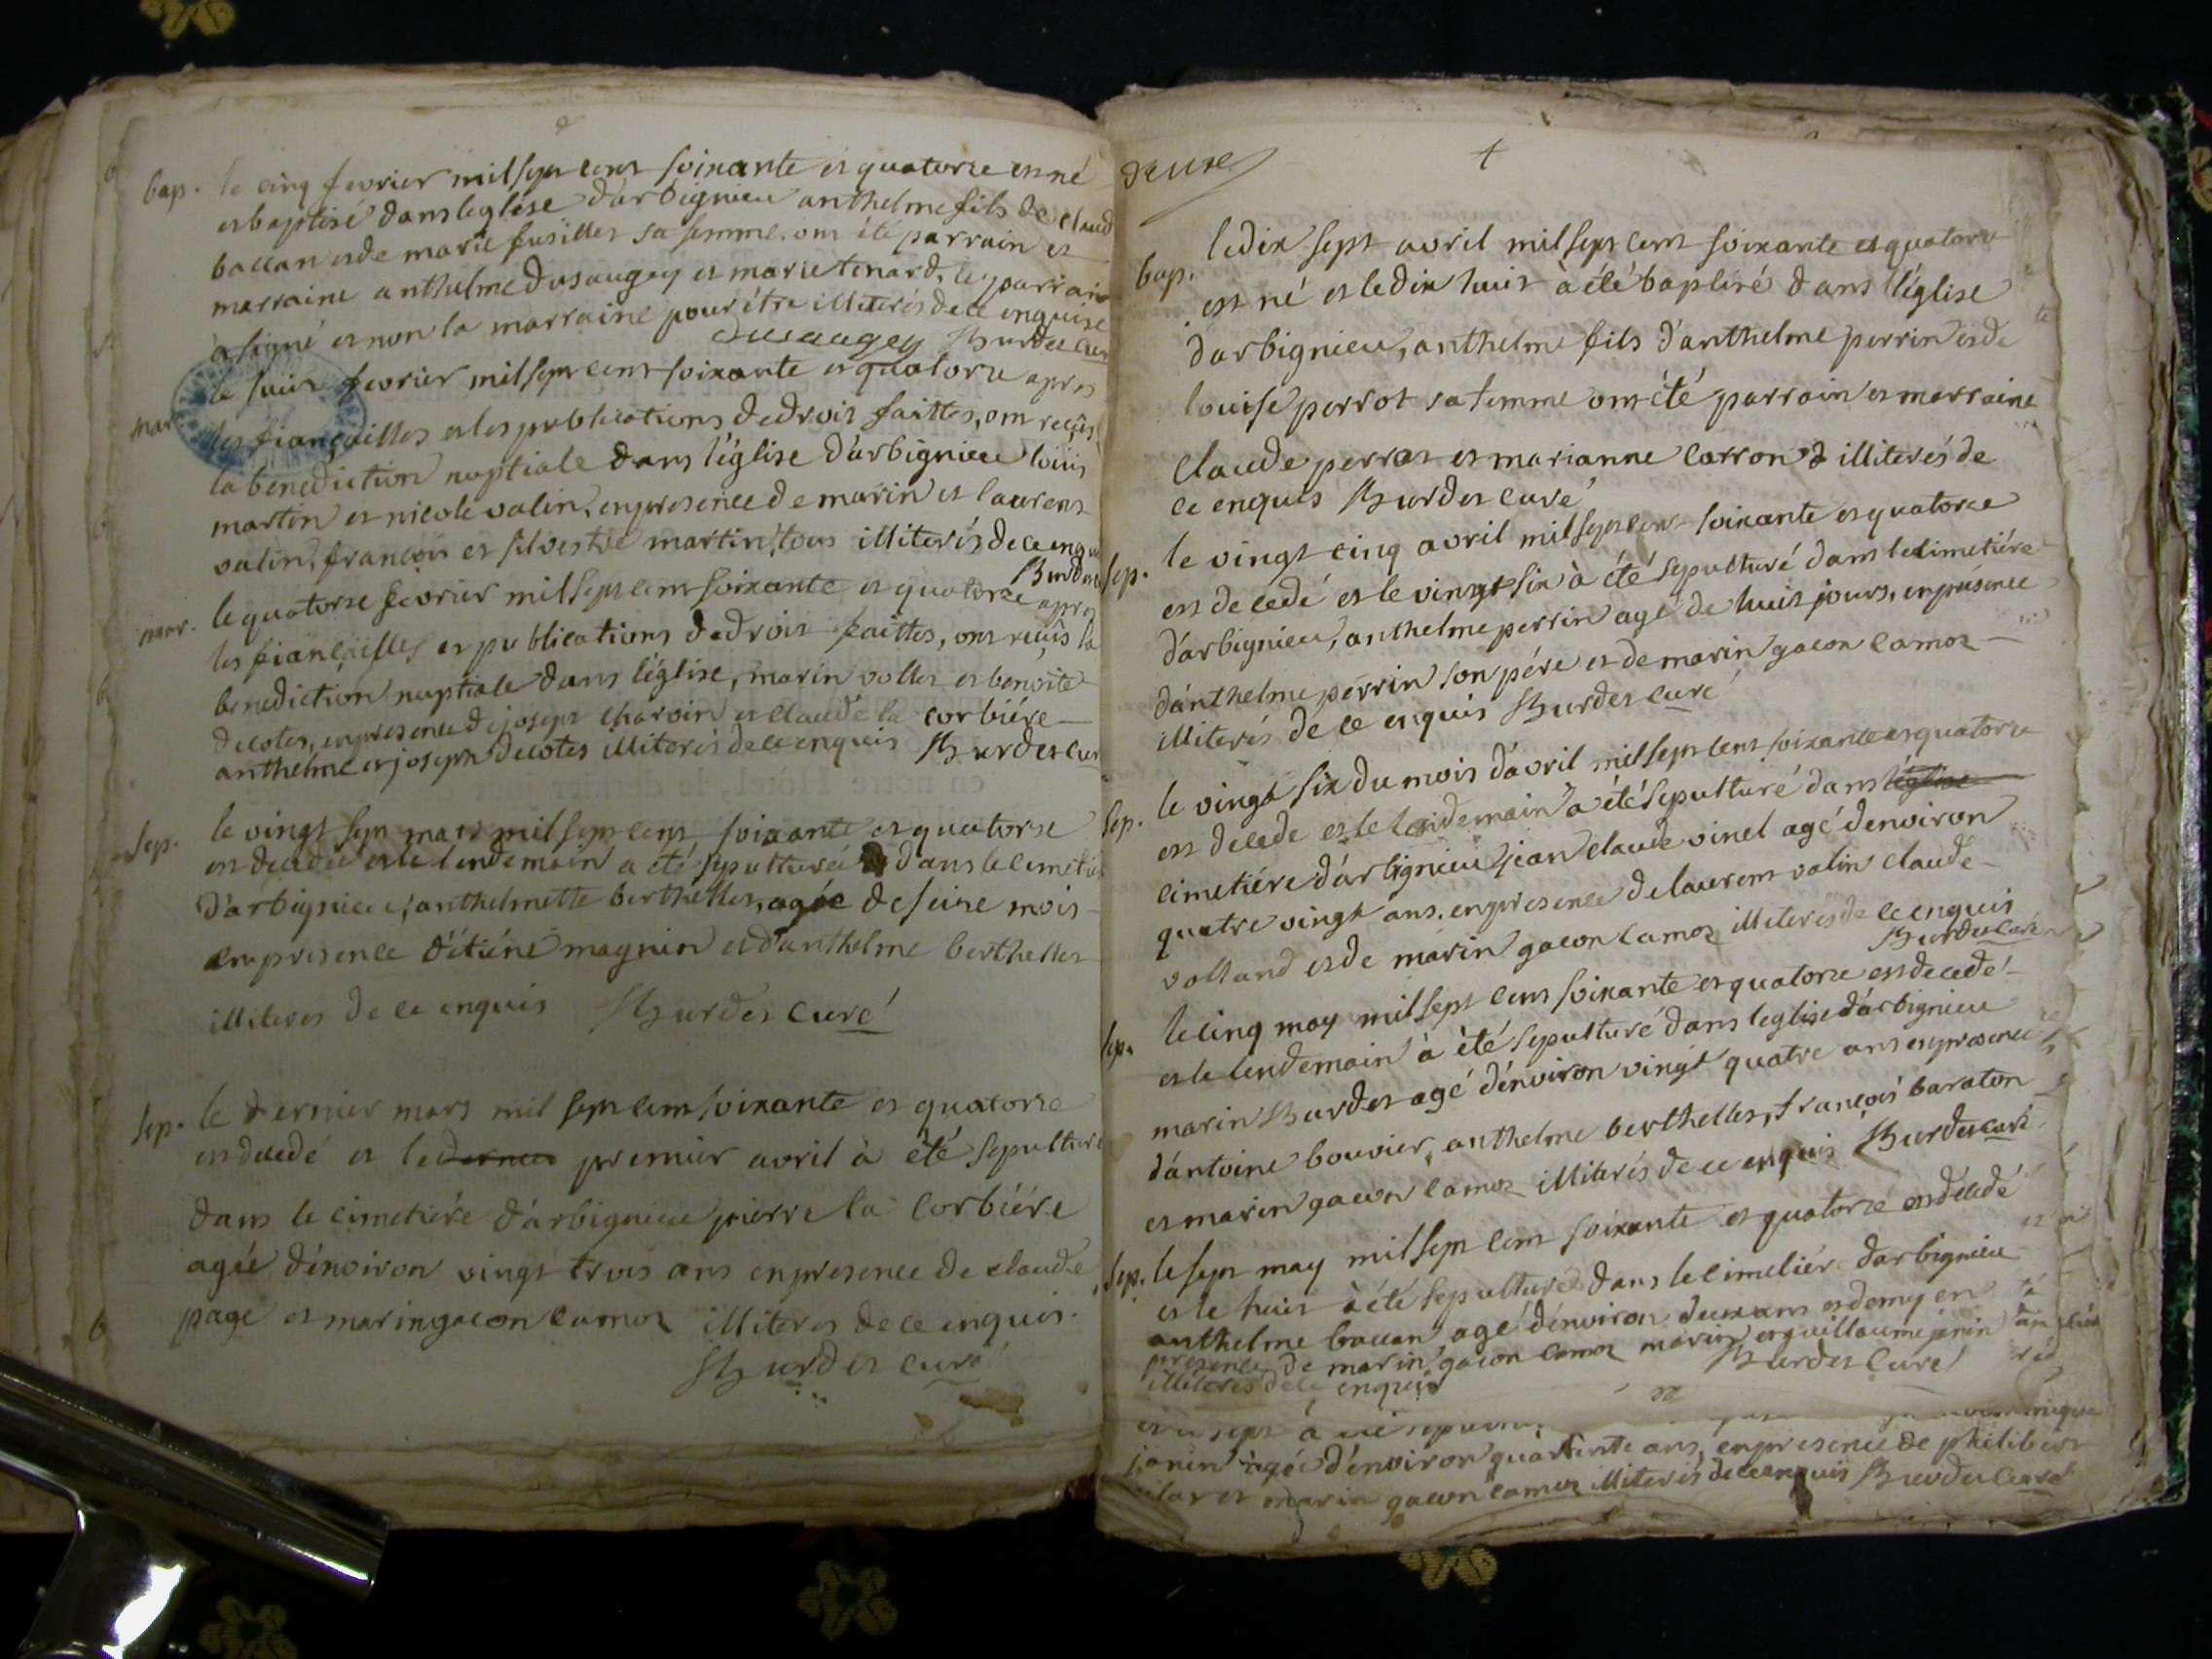 bap. le cinq fevrier mil sept cent soixante et quatorze est né
et baptisé dans leglise d'arbignieu anthelme fils de claud
baccan et de marie fusillet sa femme. ont été parrain et
marraine anthelme dusaugey et marie tenard, le parrain
a signé et non la marraine pour être illiterés de ce enquise
dusaugey Burdet curé
mar. le huit fevrier mil sept cent soixante et quatorze apres
les fiançailles et les publications de droit faittes, ont reçûs
la bénediction nuptiale dans l'église d'arbignieu louis
martin et nicole valin, en presence de marin et laurent
valin, françois et silvestre martin, tous illiterés de ce enqu
Burdet
mar. le quatorze fevrier mil sept cent soixante et quatorze apres
les fiançailles et publications de droit faittes, ont reçûs la
benediction nuptiale dans l'église, marin vollet et benoite
decotes, en presence de joseph charvin et claude la corbiére
anthelme et joseph decotes illiterés de ce enquis Burdet curé
sep. le vingt sept mars mil sept cent soixante et quatorze
est decedée et le lendemain a été sepulturée dans le cimetié
d'arbignieu, anthelmette berthellet, agée de seize mois
en presence d'étiéne magnin et d'anthelme berthellet
illiterés de ce enquis Burdet curé
sep. le dernier mars mil sept cent soixante et quatorze
est decedé et le dernier premier avril à été sepulturé
dans le cimetiére d'arbignieu pierre la corbiére
agée d'énviron vingt trois ans en presence de claude
page et marin gacon camoz illiterés de ce enquis.
Burdet curé
deuxe
4
bap. le dix sept avril mil sept cent soixante et quatorze
est né et le dix huit à été baptisé dans l'église
d'arbignieu, anthelme fils d'anthelme perrin et de
louise perrot sa femme ont été parrain et marraine
claude perrot et marianne carrond illiterés de
ce enquis Burdet curé
sep. le vingt cinq avril mil sept cent soixante et quatorze
est decedé et le vingt six à été sepulturé dans le cimetiére
d'arbignieu, anthelme perrin agé de huit jours, en présence
d'anthelme perrin son pére et de marin gacon camoz
illiterés de ce enquis Burdet curé
sep. le vingt six du mois d'avril mil sept cent soixante et quatorze
est decede et le lendemain a été sepulturé dans léglise
cimetiére d'arbignieu jean claude vinel agé d'environ
quatre vingt ans. en presence de laurent valin claude
volland et de marin gacon camoz illiterés de ce enquis
Burdet curé
sep. le cinq may mil sept cent soixante et quatorze est decedé
et le lendemain à été sepulturé dans leglise d'arbignieu
marin Burdet agé d'énviron vingt quatre ans en presence
d'ántoine bouvier, anthelme berthellet, françois baraton
et marin gacon camoz illiterés de ce enquis Burdet curé
sep. le sept may mil sept cent soixante et quatorze est décedé
et le huit à été sepulturé dans le cimetiére d'arbignieu
anthelme baccan agé d'énviron deux ans et demy en
presence de marin gacon camoz marin et guillaume janin
illiterés de ce enquis Burdet curé
janin agée d'énviron quarante ans, en presence de philibert
et marin gacon camoz illiterés de ce enquis Burdet curé